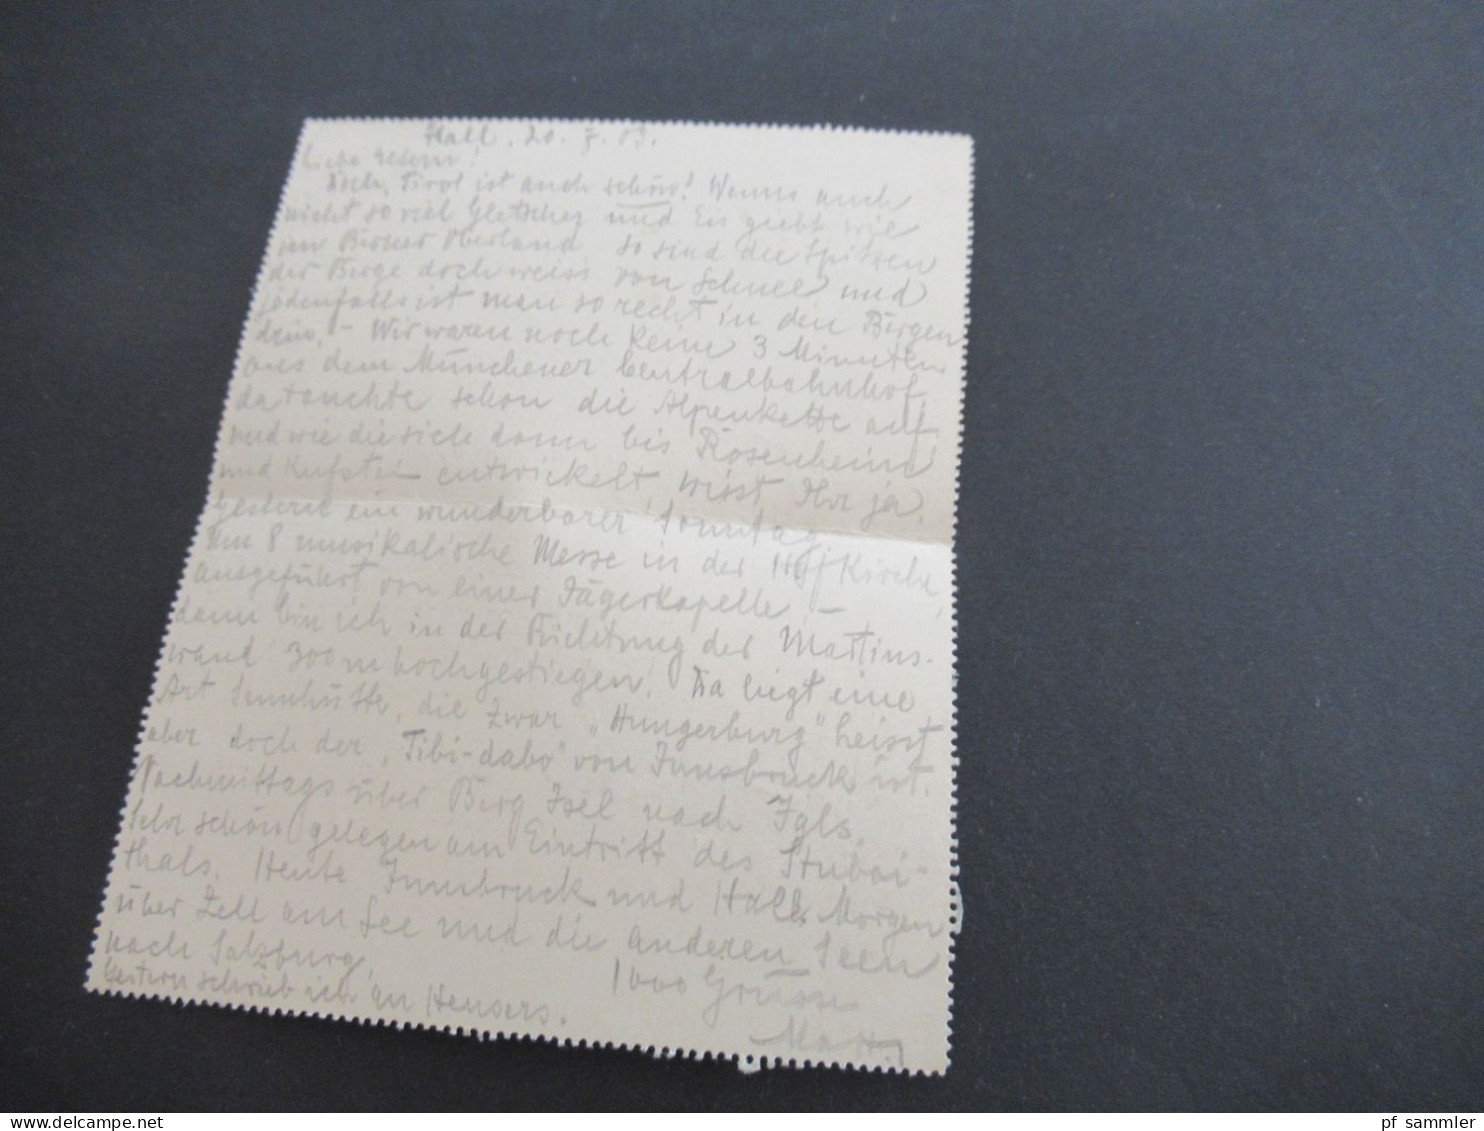 Hall, 20. 7. 03.
Liebe Eltern!
Doch, Tirol ist auch schön! Wenns auch
nicht so viel Gletscher und Eis giebt wie
im Berner Oberland so sind die Spitzen
der Berge doch weiss von Schnee und
jedenfalls ist man so recht in den Bergen
drin. – Wir waren noch keine 3 Minuten
aus dem Münchener Centralbahnhof,
da tauchte schon die Alpenkette auf,
und wie die sich dann bis Rosenheim
und Kufstein entwickelt, wisst Ihr ja.
Gestern ein wunderbarer Sonntag.
Um 8 musikalische Messe in der Hofkirche,
ausgeführt von einer Jägerkapelle, –
dann bin ich in der Richtung der Martins-
wand 300 m hochgestiegen. Da liegt eine
Art Sennhütte, die zwar „Hungerburg" heisst
aber doch der „Tibi-dabo" von Innsbruck ist.
Nachmittags über Berg Isel nach Igls,
sehr schön gelegen am Eintritt des Stubai-
thals. Heute Innsbruck und Hall. Morgen
über Zell am See und die anderen Seen
nach Salzburg.
1000 Grüsse
Gestern schrieb ich an Hensers.